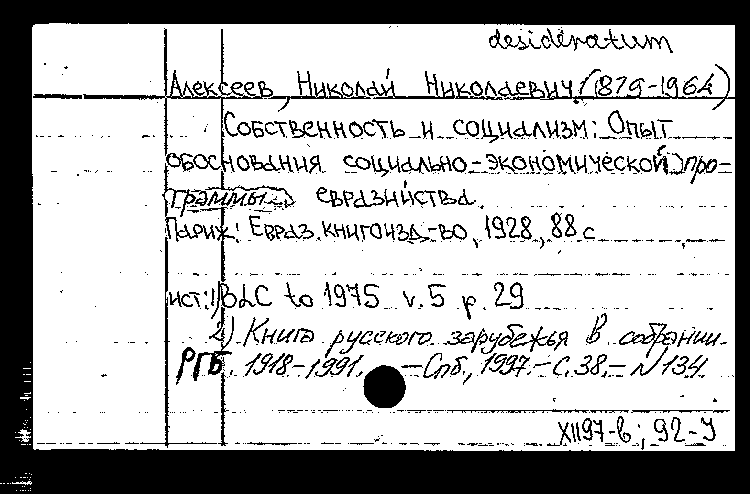 desideratum
Алексеев, Николай Николаевич (1879-1964)
Собственность и социализм: Опыт
обоснования социально-экономической про-
граммы евразийства.
Париж: Евраз. книгоизд-во, 1928, 88 с
ист.: 1) BLC to 1975 v. 5 p. 29
2) Книга русского зарубежья в собрании
РГБ. 1918-1991. – Спб., 1997. – С. 38. – N 134.
XII97-6; 92-У